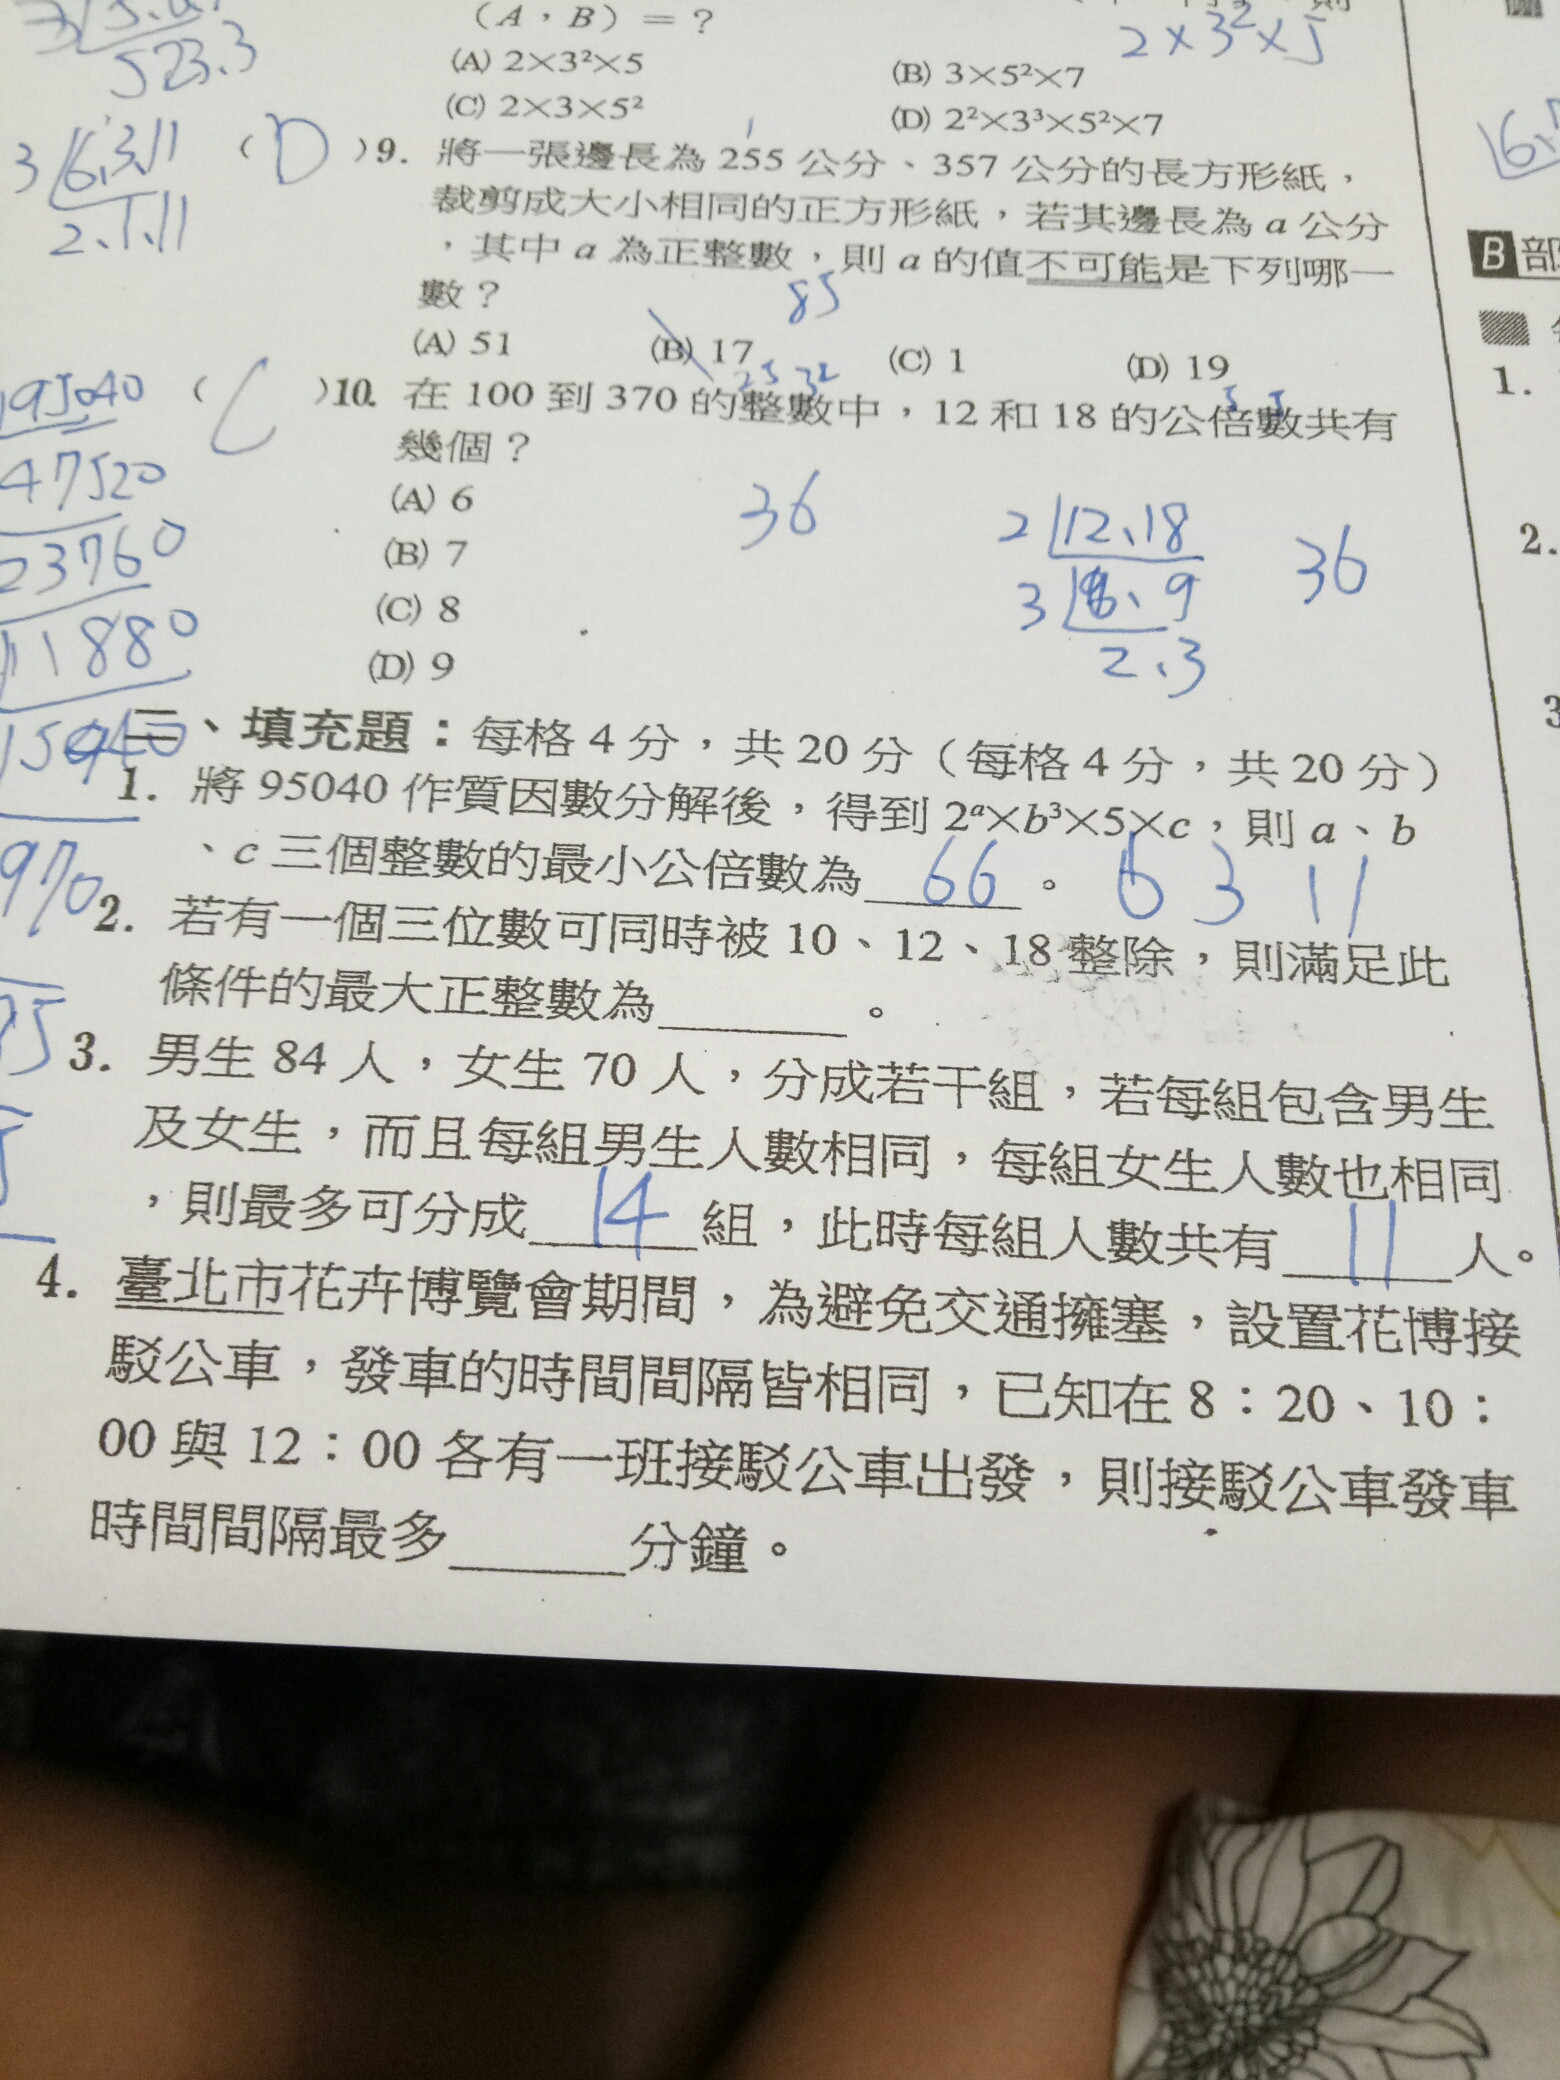 523.3
(A，B)＝？
2×3²×5
(A) 2×3²×5
(B) 3×5²×7
(C) 2×3×5²
(D) 2²×3³×5²×7
3 6,3,11
2、1、11
( D )9. 將一張邊長為 255 公分、357 公分的長方形紙，
裁剪成大小相同的正方形紙，若其邊長為 a 公分
，其中 a 為正整數，則 a 的值不可能是下列哪一
數？
85
(A) 51 (B) 17 (C) 1 (D) 19
( C )10. 在 100 到 370 的整數中，12 和 18 的公倍數共有
幾個？
(A) 6
(B) 7
(C) 8
(D) 9
36
2 12、18
3 6、9
2、3
36
95040
47520
23760
11880
二、填充題：每格 4 分，共 20 分（每格 4 分，共 20 分）
1. 將 95040 作質因數分解後，得到 2ᵃ×b³×5×c，則 a、b
、c 三個整數的最小公倍數為 66 。
6 3 11
2. 若有一個三位數可同時被 10、12、18 整除，則滿足此
條件的最大正整數為 。
3. 男生 84 人，女生 70 人，分成若干組，若每組包含男生
及女生，而且每組男生人數相同，每組女生人數也相同
，則最多可分成 14 組，此時每組人數共有 11 人。
4. 臺北市花卉博覽會期間，為避免交通擁塞，設置花博接
駁公車，發車的時間間隔皆相同，已知在 8：20、10：
00 與 12：00 各有一班接駁公車出發，則接駁公車發車
時間間隔最多 分鐘。
B 部
1.
2.
3